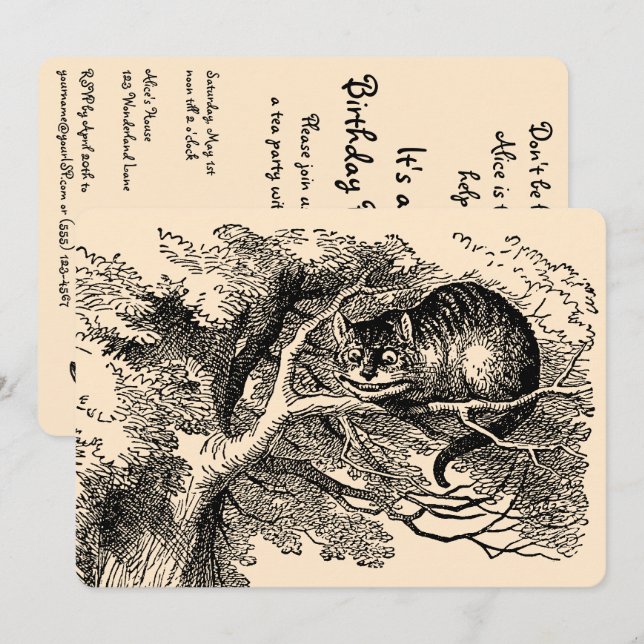 Don't be
Alice is
help
It's a
Birthday
Please join
a tea party
Saturday, May 1st
noon till 2 o'clock
Alice's House
123 Wonderland Lane
RSVP by April 20th to
yourname@yourISP.com or (555) 123-4567